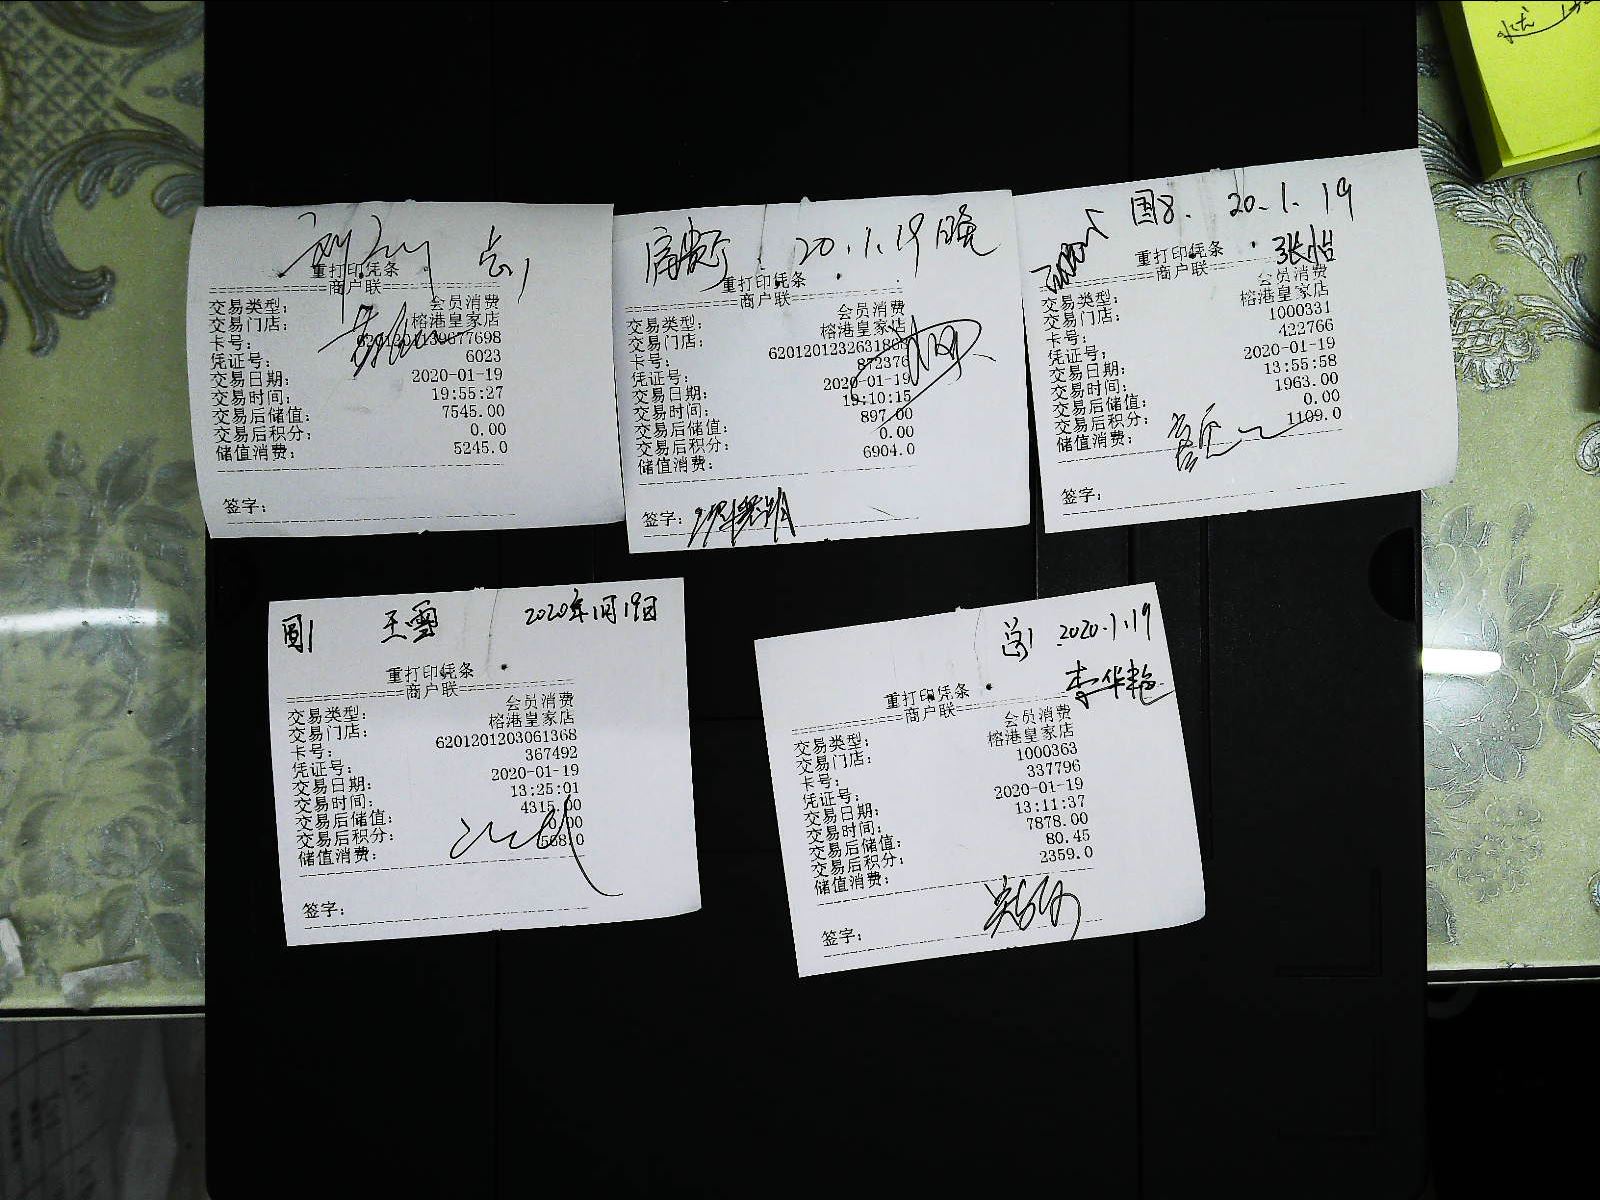 重打印凭条
商户联
交易类型： 会员消费
交易门店： 榕港皇家店
卡号：
凭证号： 6023
交易日期： 2020-01-19
交易时间： 19:55:27
交易后储值： 7545.00
交易后积分： 0.00
储值消费： 5245.0
签字：
20.1.19晚
重打印凭条
商户联
交易类型： 会员消费
交易门店： 榕港皇家店
卡号：
凭证号： 872376
交易日期： 2020-01-19
交易时间： 19:10:15
交易后储值： 897.00
交易后积分： 0.00
储值消费： 6904.0
签字：
国8. 20.1.19
张怡
重打印凭条
商户联
交易类型： 会员消费
交易门店： 榕港皇家店
卡号： 1000331
凭证号： 422766
交易日期： 2020-01-19
交易时间： 13:55:58
交易后储值： 1963.00
交易后积分： 0.00
储值消费： 1109.0
签字：
王雪 2020年1月19日
重打印凭条
商户联
交易类型： 会员消费
交易门店： 榕港皇家店
卡号： 6201201203061368
凭证号： 367492
交易日期： 2020-01-19
交易时间： 13:25:01
交易后储值： 4315.00
交易后积分： 0.00
储值消费： 568.0
签字：
总1 2020.1.19
李华艳
重打印凭条
商户联
交易类型： 会员消费
交易门店： 榕港皇家店
卡号： 1000363
凭证号： 337796
交易日期： 2020-01-19
交易时间： 13:11:37
交易后储值： 7878.00
交易后积分： 80.45
储值消费： 2359.0
签字：